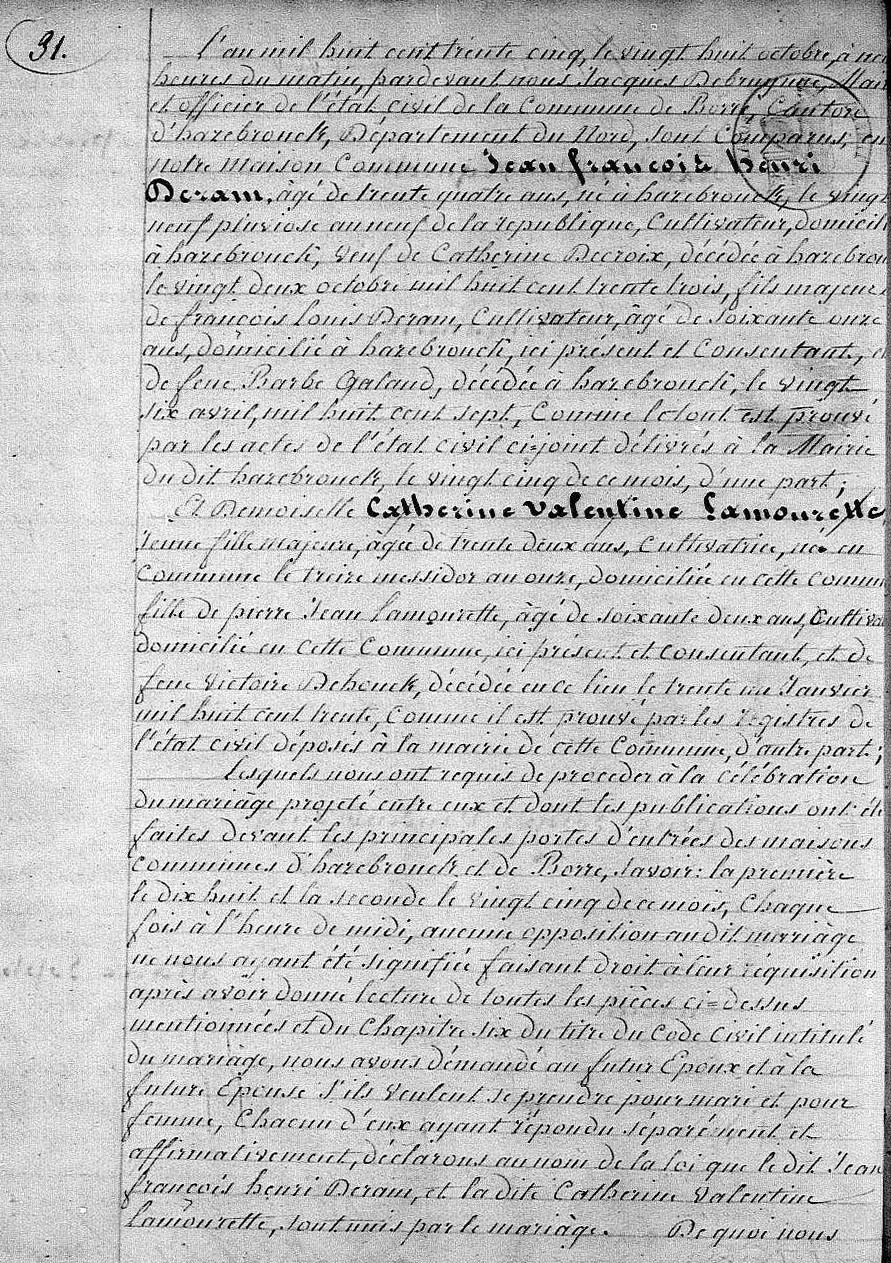 31.
L'an mil huit cent trente cinq, le vingt huit octobre, à
heures du matin, pardevant nous Jacques Debruyne, Mair
et officier de l'état civil de la Commune de Borre, Canton
d'hazebrouck, Département du Nord, sont Comparus, en
notre maison Commune Jean françois henri
Deram, âgé de trente quatre ans, né à hazebrouck, le vingt
neuf pluviose an neuf de la république, Cultivateur, domicili
à hazebrouck, veuf de Catherine Decroix, décédée à hazebrou
le vingt deux octobre mil huit cent trente trois, fils majeur
de françois Louis Deram, Cultivateur, âgé de soixante onze
ans, domicilié à hazebrouck, ici présent et Consentant, e
de feue Barbe Galand, décédée à hazebrouck, le vingt
six avril, mil huit cent sept, Comme le tout est prouvé
par les actes de l'état civil ci-joint délivrés à la Mairie
du dit hazebrouck, le vingt cinq de ce mois, d'une part;
Et Demoiselle Catherine Valentine Lamourette
Jeune fille majeure, âgée de trente deux ans, Cultivatrice, née en
Commune le treize messidor an onze, domiciliée en cette Commun
fille de pierre Jean Lamourette, âgé de soixante deux ans, Cultiva
domicilié en cette Commune, ici présent et consentant, et de
feue Victoire Dehouck, décédée en ce lieu le trente un Janvier
mil huit cent trente, Comme il est prouvé par les registres de
l'état civil déposés à la mairie de cette Commune, d'autre part;
Lesquels nous ont requis de proceder à la célébration
du mariage projeté entre eux et dont les publications ont été
faites devant les principales portes d'entrées des maisons
communes d'hazebrouck et de Borre, savoir: la première
le dix huit et la seconde le vingt cinq de ce mois, Chaque
fois à l'heure de midi, aucune opposition au dit mariage
ne nous ayant été signifiée faisant droit à leur réquisition
après avoir donné lecture de toutes les pièces ci=dessus
mentionnées et du Chapitre six du titre du Code Civil intitulé
du mariage, nous avons démandé au futur Epoux et à la
future Epouse s'ils veulent se prendre pour mari et pour
femme, Chacun d'eux ayant répondu séparément et
affirmativement, déclarons au nom de la loi que le dit Jean
françois henri Deram, et la dite Catherine Valentine
Lamourette, sont unis par le mariage. De quoi nous